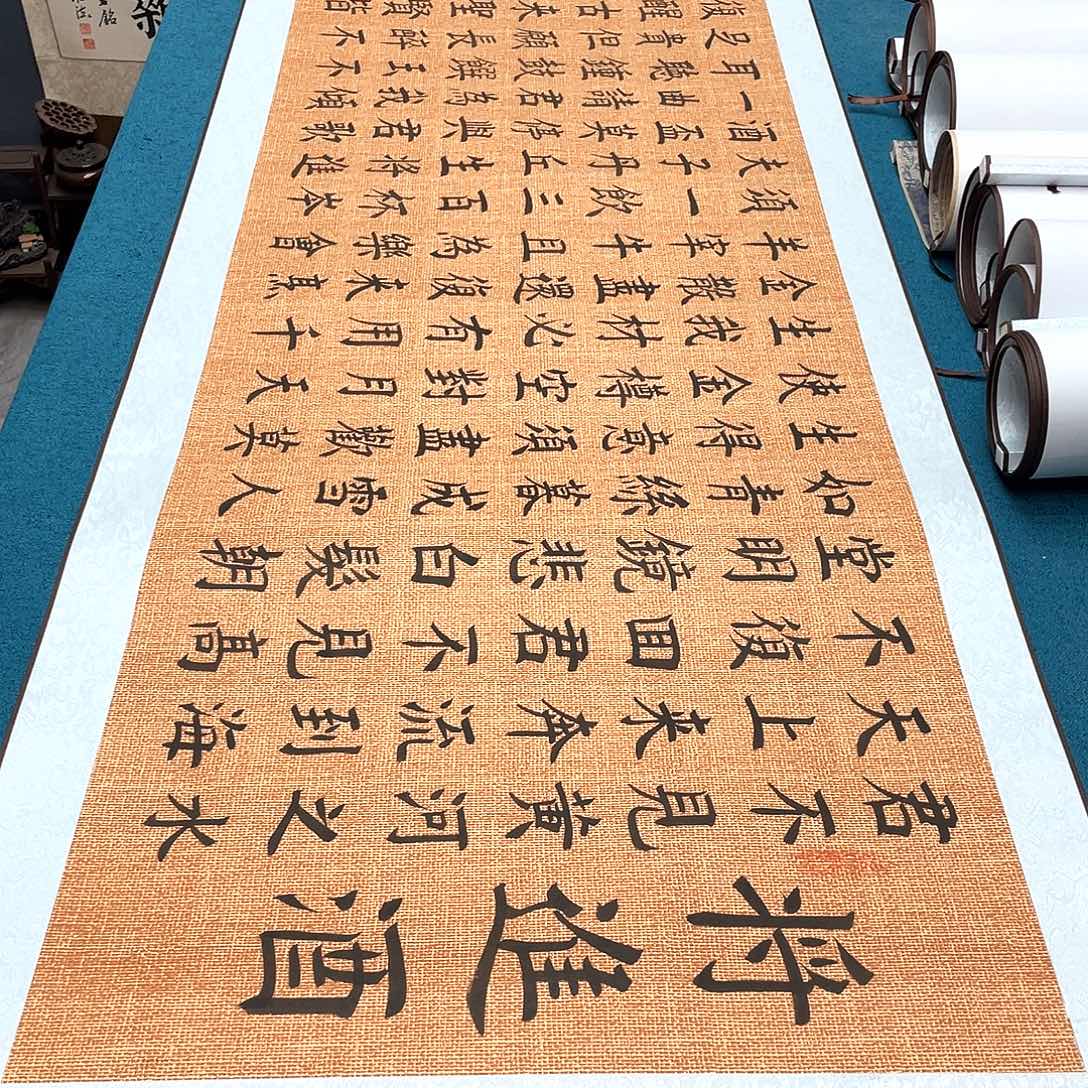 将進酒
君不見黄河之水
天上来奔流到海
不復回君不見高
堂明鏡悲白髮朝
如青絲暮成雪人
生得意須盡歡莫
使金樽空對月天
生我材必有用千
金散盡還復来烹
羊宰牛且為樂會
須一飲三百杯岑
夫子丹丘生将進
酒盃莫停與君歌
一曲請君為我傾
耳聽鐘鼓饌玉不
足貴但願長醉不
復醒古来聖賢皆